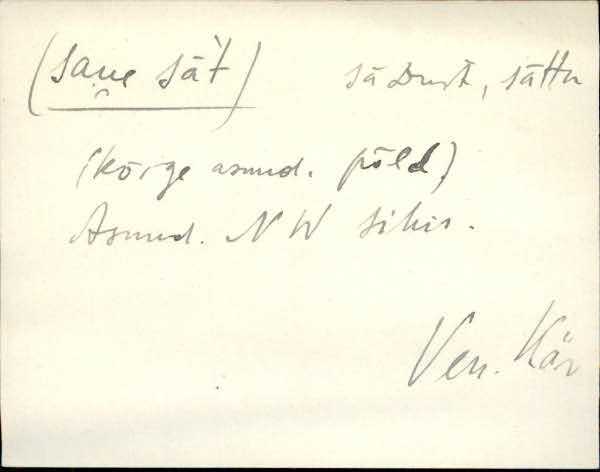 (saue sä't) säDust, sättu
(kõrge asund. põld)
Asund. NW sihis.
Ven. Kär